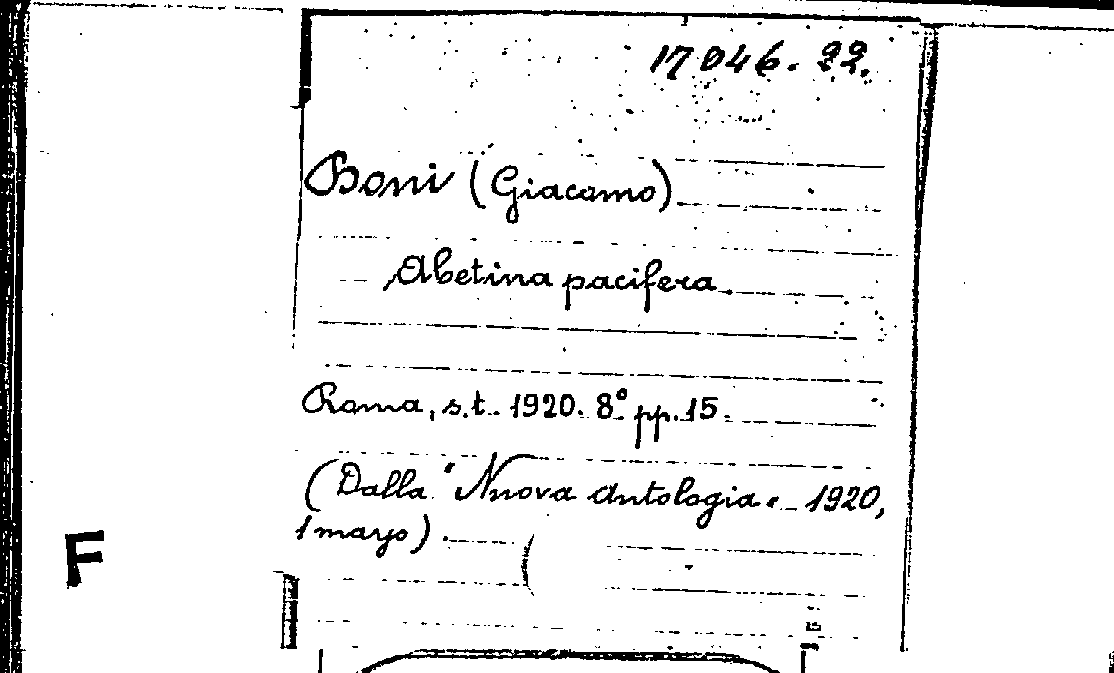 17046.22.
Boni (Giacomo)
Abetina pacifera.
Roma, s.t. 1920. 8° pp. 15.
(Dalla "Nuova Antologia" 1920,
1 marzo).
F